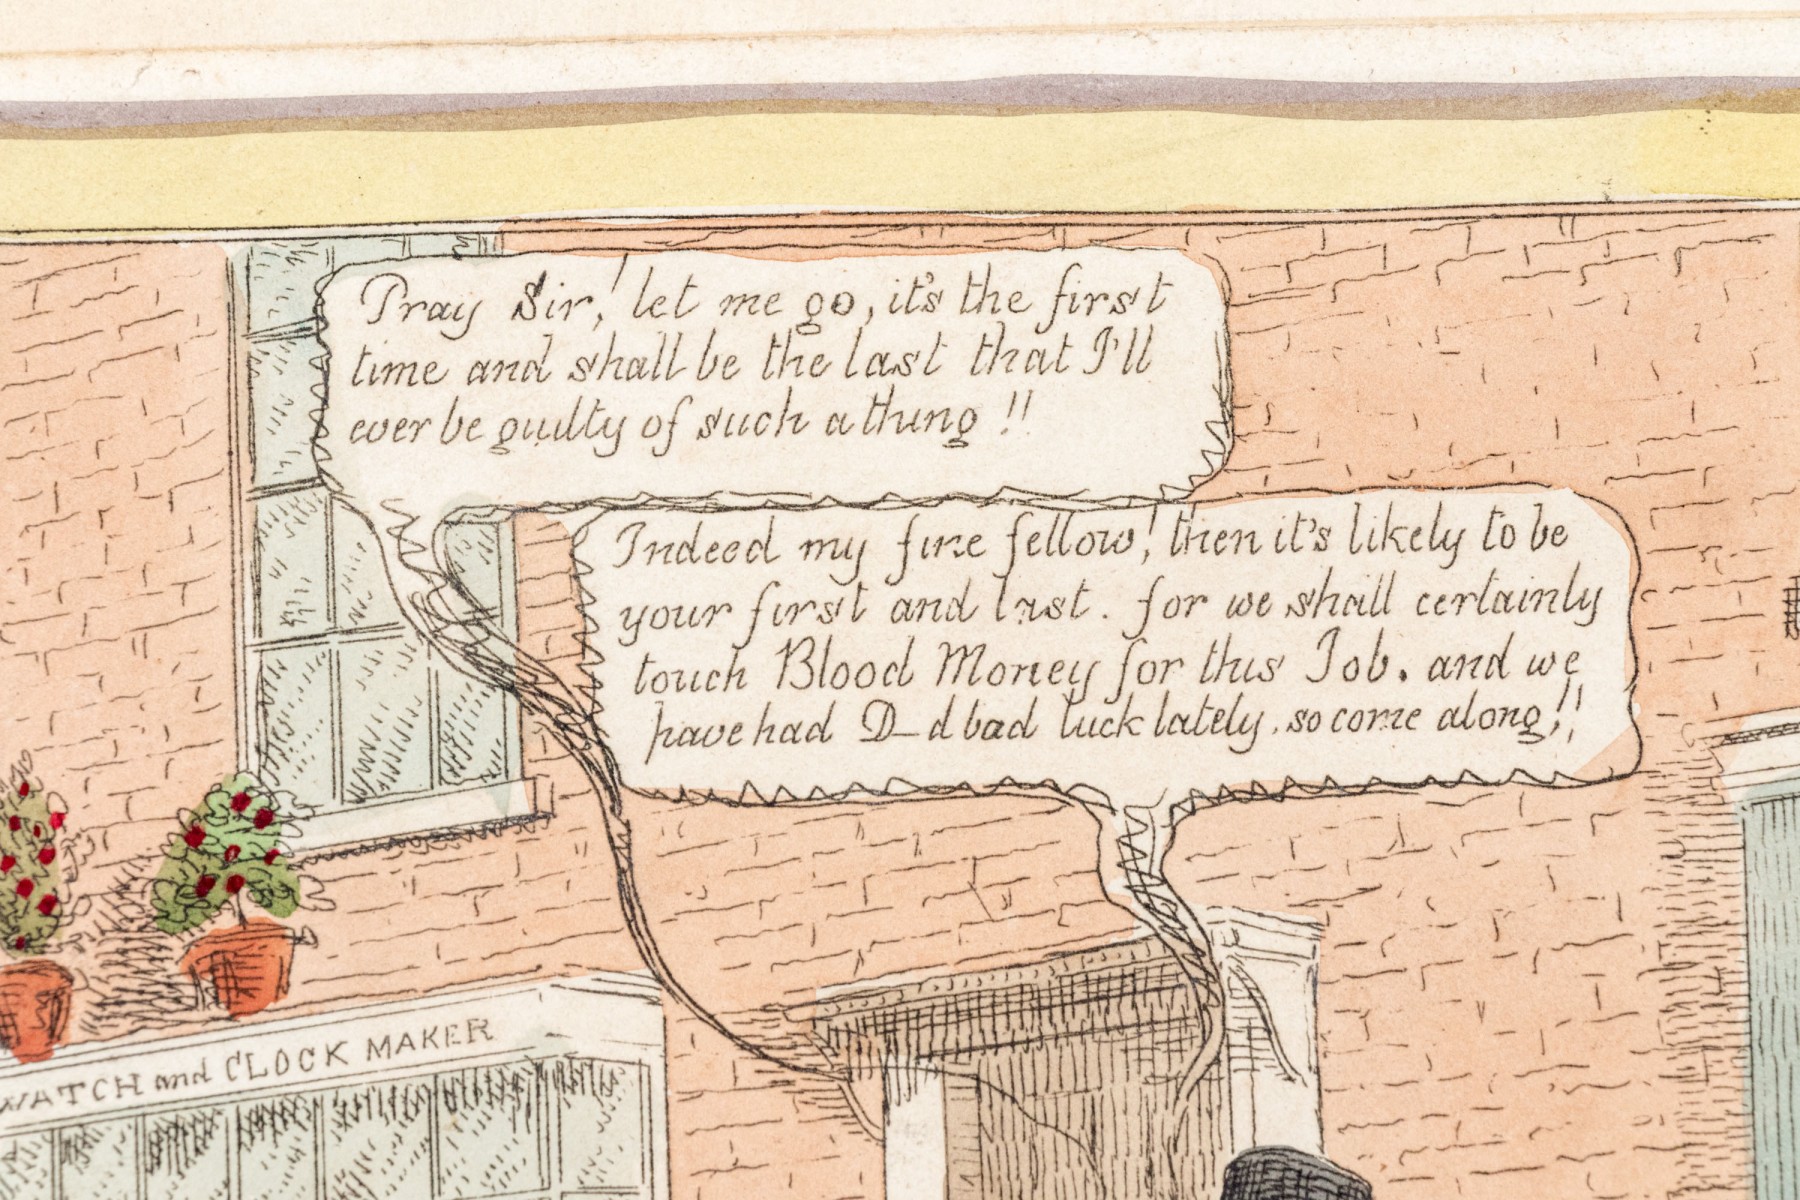 Pray Sir,! let me go, it's the first
time and shall be the last that I'll
ever be guilty of such a thing !!
Indeed my fine fellow! then it's likely to be
your first and last. for we shall certainly
touch Blood Money for this Job. and we
have had D_d bad luck lately. so come along!!
WATCH and CLOCK MAKER